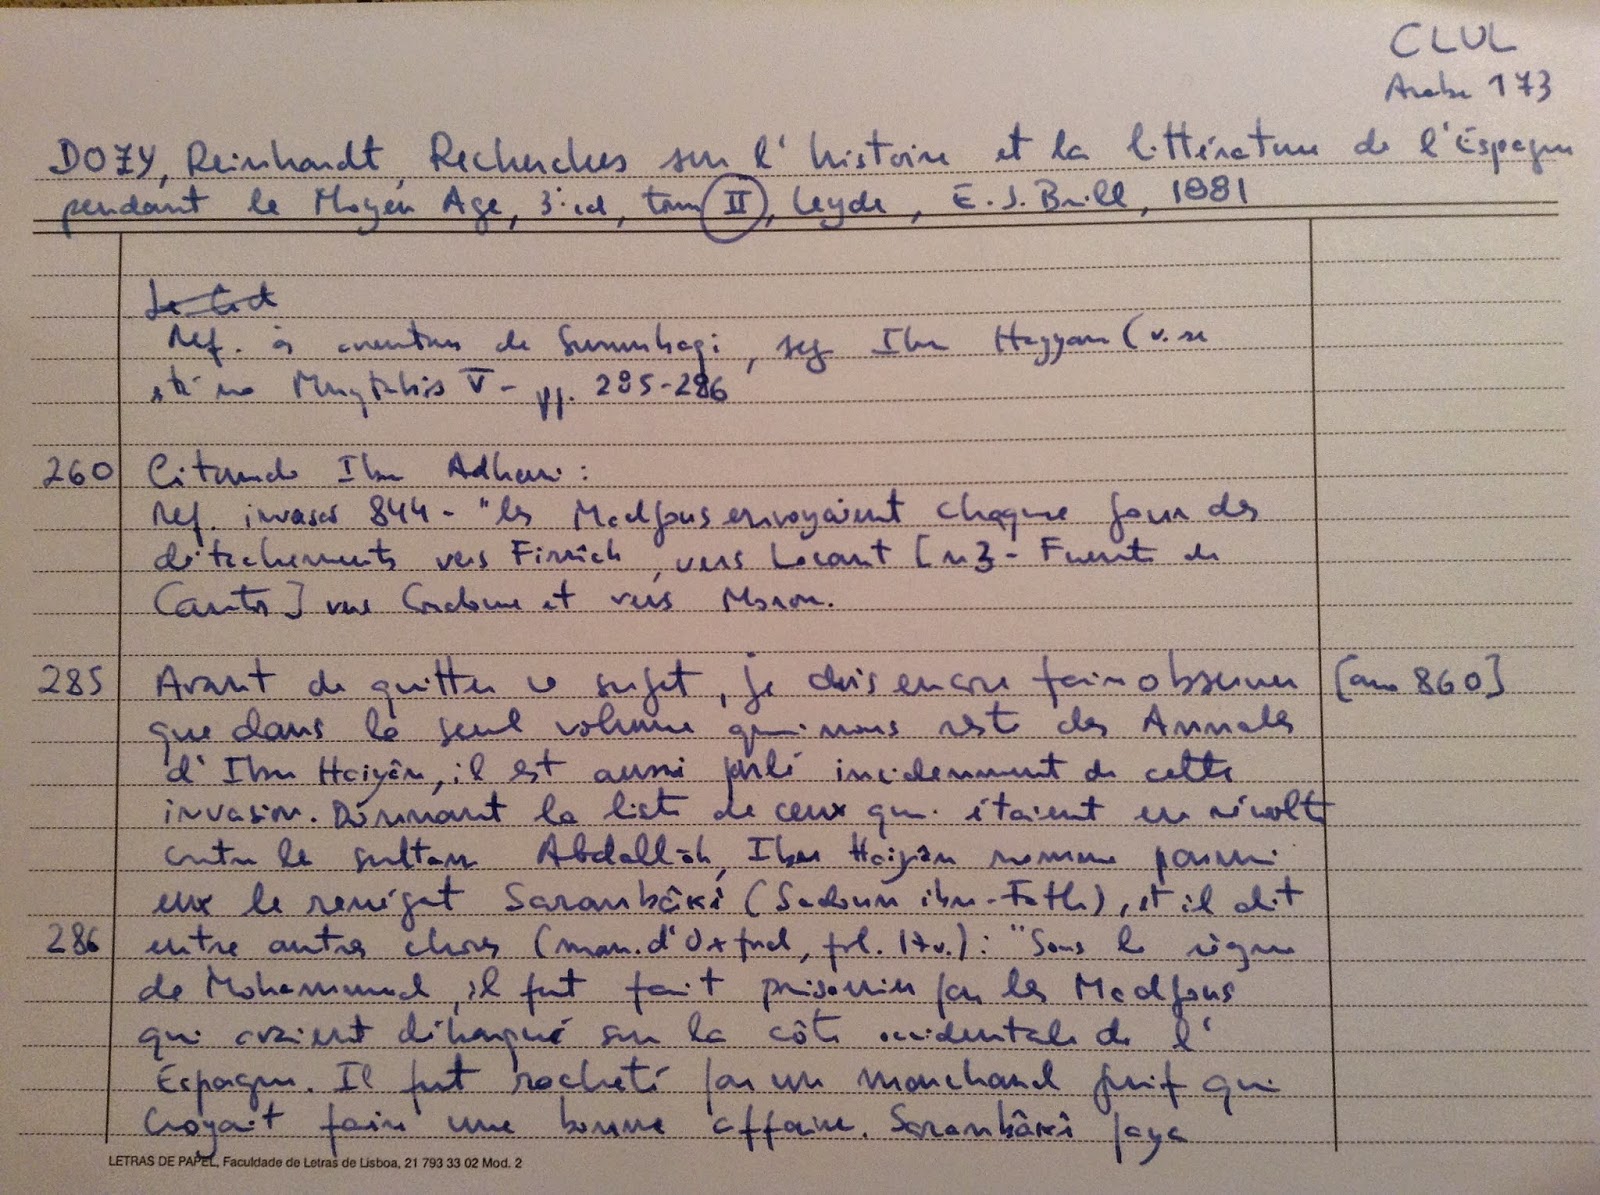 CLUL
Arabe 173
DOZY, Reinhardt, Recherches sur l'histoire et la littérature de l'Espagne
pendant le Moyen Age, 3ª ed, tome II, Leyde, E. J. Brill, 1881
Le Cid
Ref. a aventuras de Surunbaqi, seg Ibn Hayyan (v. se
está no Muqtabis V - pp. 285-286
260 Citando Ibn Adhari:
Ref. invasão 844 - "les Madjous envoyaient chaque jour des
détachements vers Firrich, vers Lecant [n3 - Fuente de
Cantos] vers Cordoue et vers Moron.
285 Avant de quitter ce sujet, je dois encore faire observer [ano 860]
que dans le seul volume qui nous reste des Annales
d'Ibn Haiyân, il est aussi parlé incidemment de cette
invasion. Donnant la liste de ceux qui étaient en révolte
contre le sultan Abdallâh, Ibn Haiyân nomme parmi
eux le renégat Saranbâkî (Sadoun ibn-Fath), et il dit
286 entre autres choses (man. d'Oxford, fol. 17v.): "Sous le règne
de Mohammed, il fut fait prisonnier par les Madjous
qui avaient débarqué sur la côte occidentale de l'
Espagne. Il fut racheté par un marchand juif qui
croyait faire une bonne affaire. Saranbâkî paya
LETRAS DE PAPEL, Faculdade de Letras de Lisboa, 21 793 33 02 Mod. 2